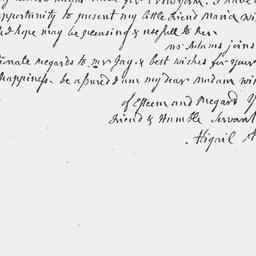 opportunity to present my little Friend Maria wi
& I hope may be pleasing & usefull to her.
mr Adams joins
tionate regards to mr Jay. & best wishes for your
Happiness. be assured I am my dear madam wi
of Esteem and Regard y
Friend & Humble Servant
Abigail A